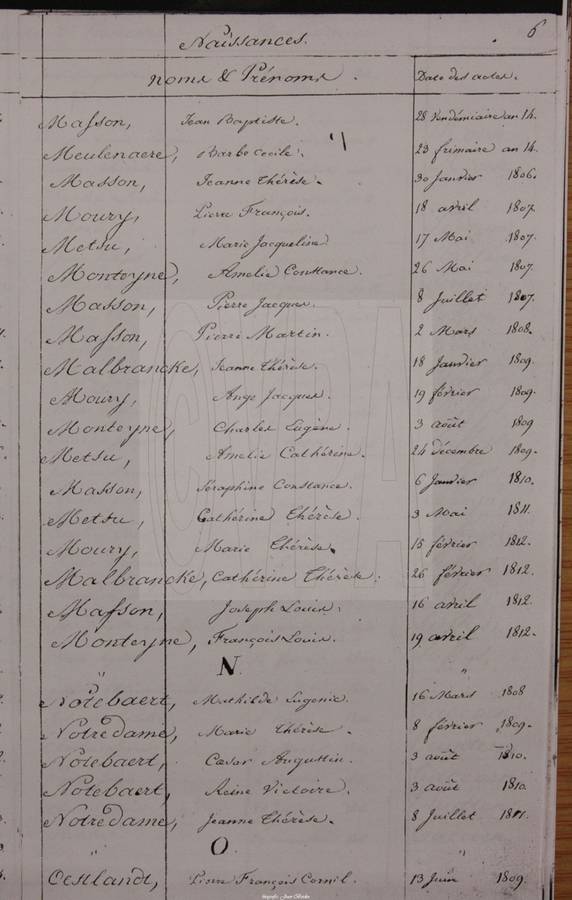 6
Naissances.
noms & Prénoms. Date des actes.
Masson, Jean Baptiste. 28 Vendémiaire an 14.
Meulenaere, Barbe Cecile. 23 frimaire an 14.
Masson, Jeanne Thérèse. 30 Janvier 1806.
Moury, Pierre François. 18 avril 1807.
Metsu, Marie Jacqueline 17 Mai 1807.
Monteyne, Amelie Constance. 26 Mai 1807.
Masson, Pierre Jacques. 8 Juillet 1807.
Masson, Pierre Martin. 2 Mars 1808.
Malbrancke, Jeanne Thérèse. 18 Janvier 1809.
Moury, Ange Jacques. 19 février 1809.
Monteyne, Charles Eugène. 3 août 1809
Metsu, Amelie Cathérine. 24 décembre 1809.
Masson, Séraphine Constance. 6 Janvier 1810.
Metsu, Cathérine Thérèse. 3 Mai 1811.
Moury, Marie Thérèse. 15 février 1812.
Malbrancke, Cathérine Thérèse. 26 février 1812.
Masson, Joseph Louis. 16 avril 1812.
Monteyne, François Louis. 19 avril 1812.
" N. "
Notebaert, Mathilde Eugenie. 16 Mars 1808
Notredame, Marie Thérèse. 8 février 1809.
Notebaert, Cæsar Augustin. 3 août 1810.
Notebaert, Reine Victoire. 3 août 1810
Notredame, Jeanne Thérèse. 8 Juillet 1811.
" O. "
Oestlandt, Pierre François Cornil. 13 Juin 1809.